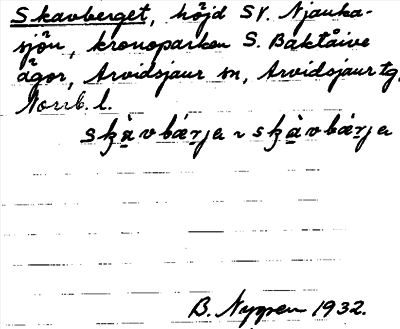 Skavberget, höjd SV. Njauka-
sjön, kronoparken S. Baktåive
ägor, Arvidsjaur sn, Arvidsjaur tg,
Norrb. l.
skàvbárja ~ skàvbárja
B. Nygren 1932.